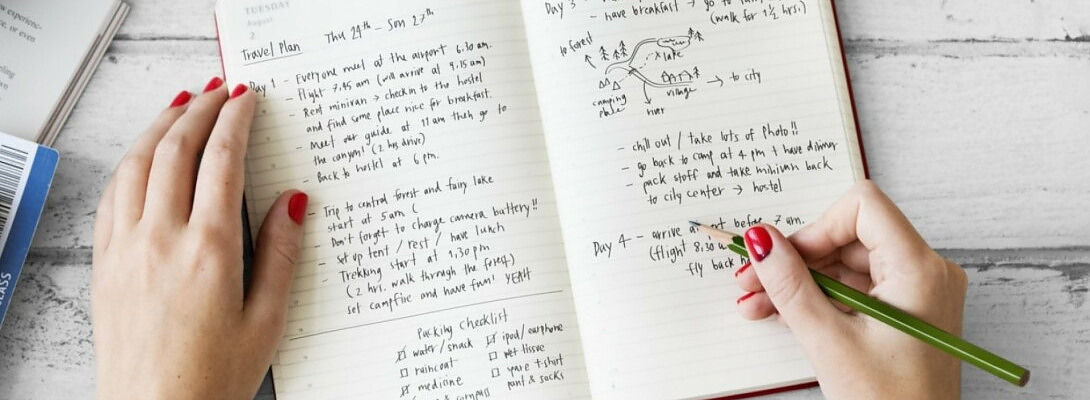 w experience-
e, or even
eling
ce
CLASS
TUESDAY
August
2
Travel Plan Thu 24th - Sun 27th
Day 1 - Everyone meet at the airport 6.30 am.
- Flight 7.45 am (will arrive at 9.15 am)
- Rent minivan → check in to the hostel
and find some place nice for breakfast.
- Meet our guide at 11 am then go to
the canyon! (2 hrs drive)
- Back to hostel at 6 pm.
- Trip to central forest and fairy lake
start at 5 am (
- Don't forget to charge camera battery!!
- set up tent / rest / have lunch
- Trekking start at 1.30 pm
(2 hrs. walk through the forest)
- set campfire and have fun! YEAH
Packing Checklist
water / snack
raincoat
medicine
& compass
ipod / earphone
wet tissue
spare t-shirt
pant & socks
Day 3
- have breakfast → go to
(walk for 1 1/2 hrs.)
to forest
lake
to city
village
camping place
river
- chill out / take lots of photo!!
- go back to camp at 4 pm + have dinner
- pack stuff and take minivan back
to city center → hostel
Day 4 - arrive before 7 am.
(flight 8.30
fly back